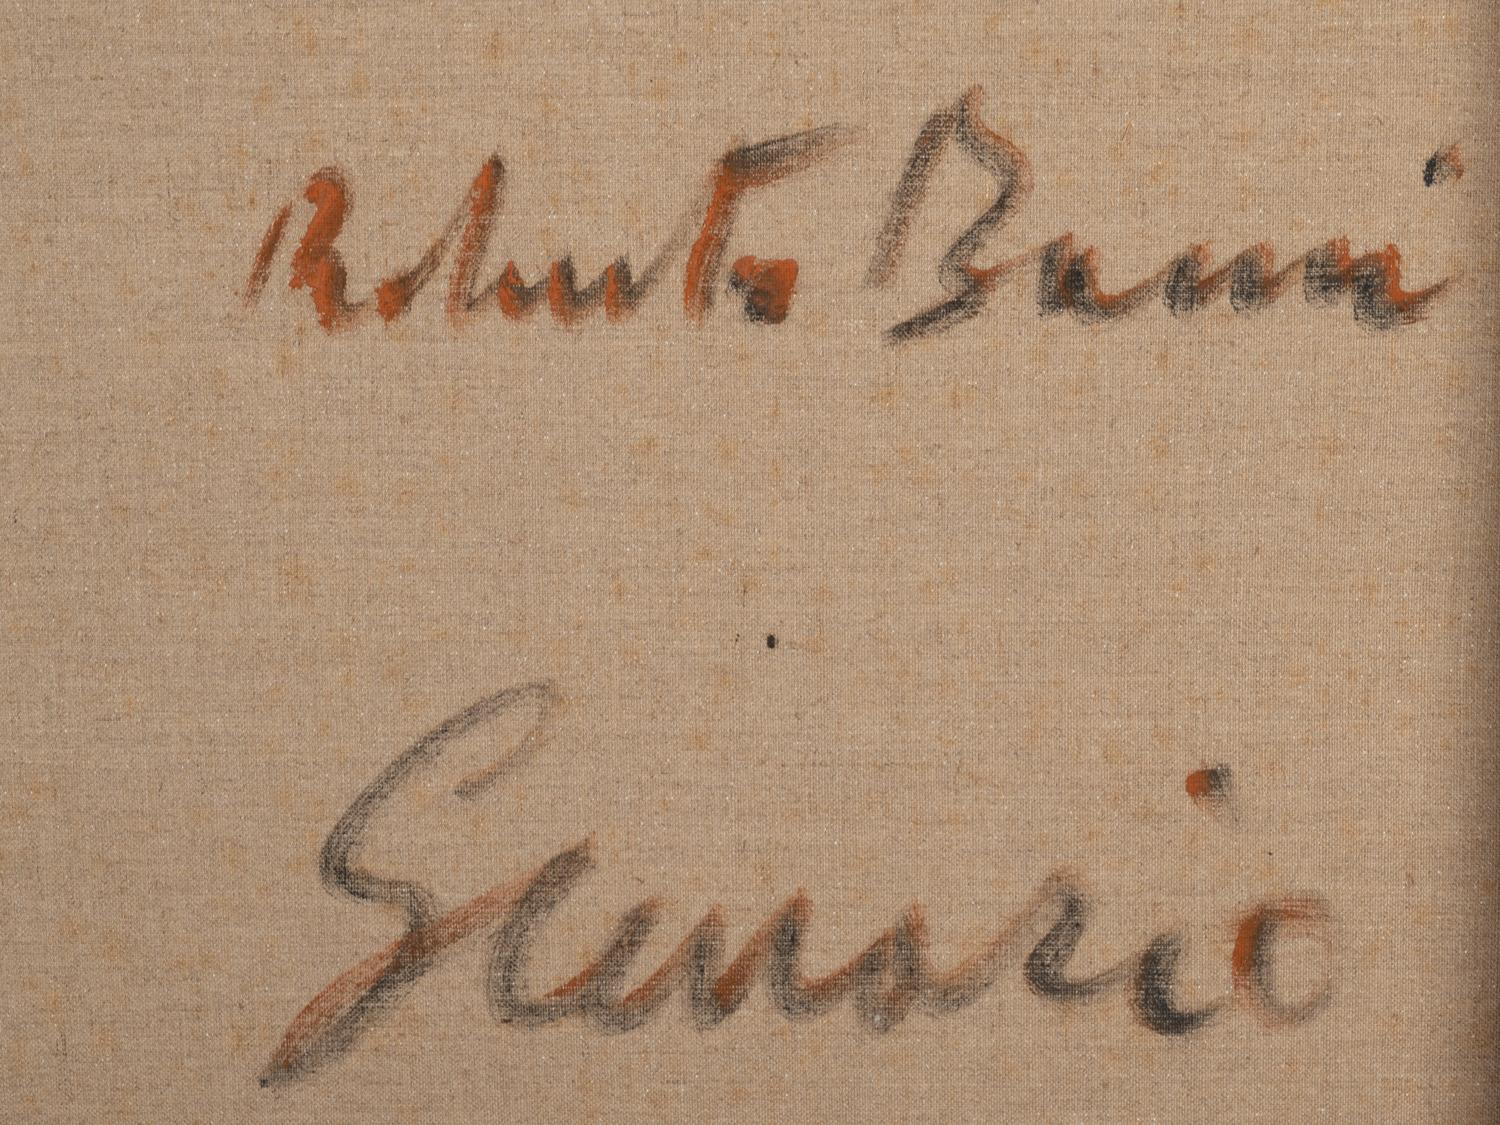 Roberto Barni
Scenario